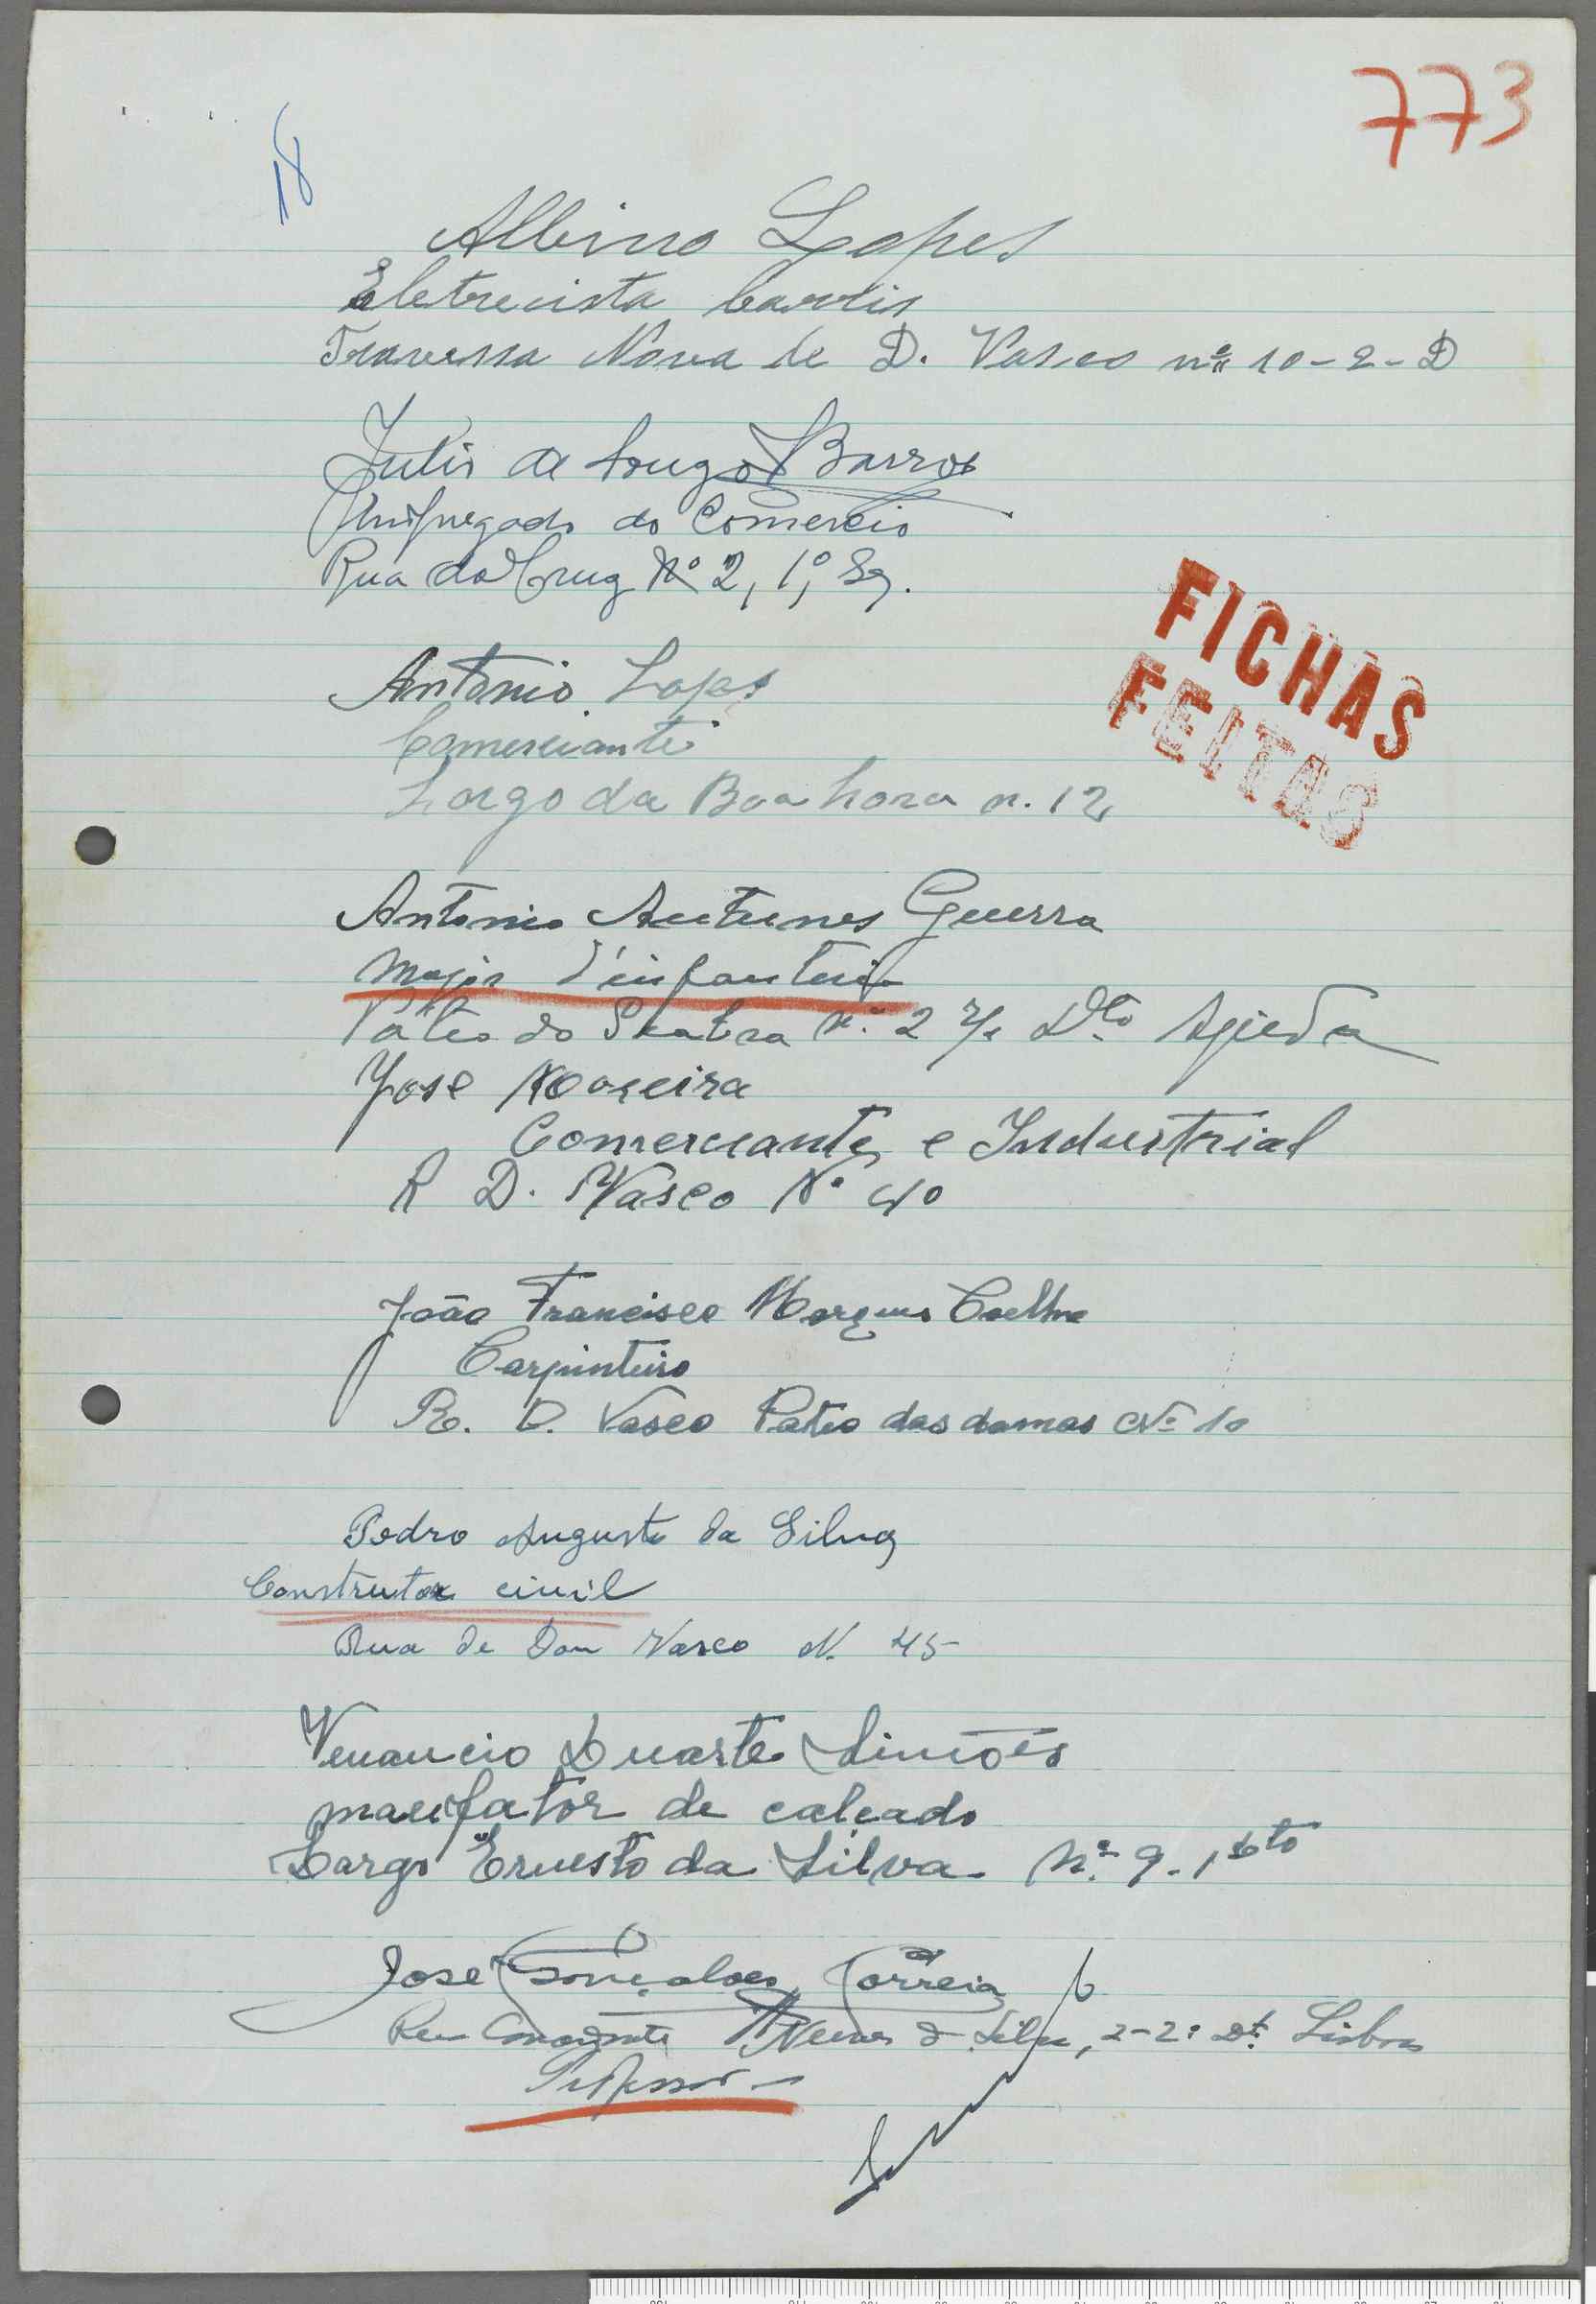 773
18
Albino Lopes
Eletrecista Carris
Travessa Nova de D. Vasco nº 10-2-D
Julio de Sousa Barros
Empregado do Comercio
Rua da Cruz Nº 2, 1º, Eq.
FICHAS
FEITAS
Antonio Lopes
Comerciante
Largo da Boa hora n. 12
Antonio Antunes Guerra
Major d'infanteria
Páteo do Seabra nº 2 r/c Dto Ajuda
José Moreira
Comerciante e Industrial
R D. Vasco Nº 40
João Francisco Marques Coelho
Carpinteiro
R. D. Vasco Pateo das damas Nº 10
Pedro Augusto da Silva
Construtor civil
Rua de Dom Vasco N. 45
Venancio Duarte Simões
manifator de calçado
Largo Ernesto da Silva nº 9-1 to
José Gonçalves Correia
Rua Neves da Silva, 2-2º Dt. Lisboa
Professor